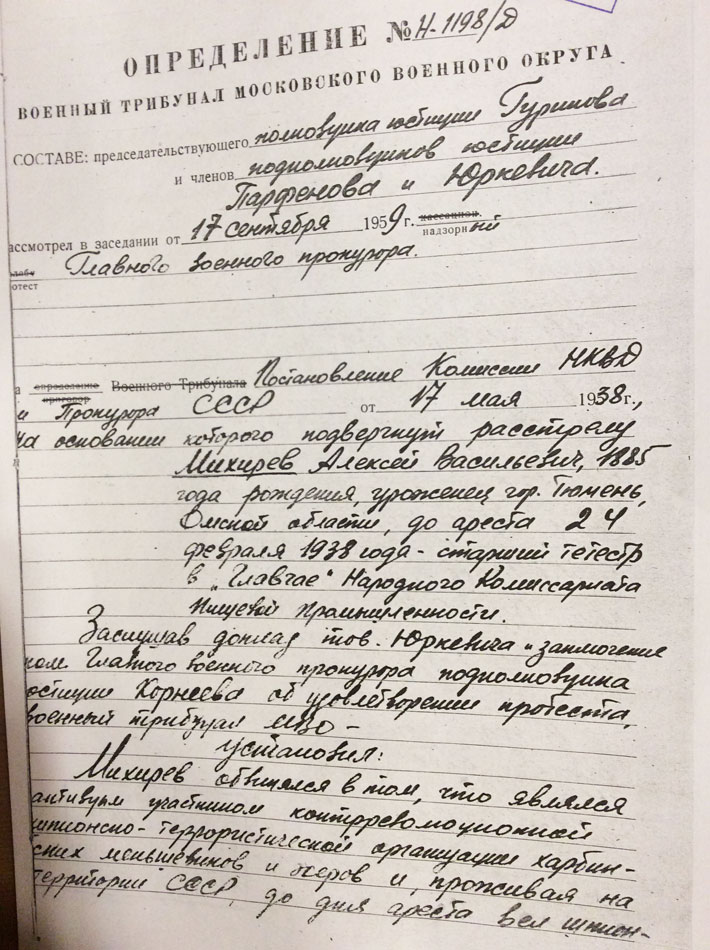 ОПРЕДЕЛЕНИЕ № Н-1198/Д
ВОЕННЫЙ ТРИБУНАЛ МОСКОВСКОГО ВОЕННОГО ОКРУГА
СОСТАВЕ: председательствующего полковника юстиции Гуринова
и членов подполковников юстиции
Парфенова и Юркевича.
ассмотрел в заседании от 17 сентября 1959 г. кассацион.
надзорный
Главного военного прокурора.
отест
а определение Военного Трибунала Постановление Комиссии НКВД
приговор
и Прокурора СССР от 17 мая 1938 г.,
на основании которого подвергнут расстрелу
Михирев Алексей Васильевич, 1885
года рождения, уроженец гор. Тюмень,
Омской области, до ареста 24
февраля 1938 года - старший тетестр
в „Главчае" Народного Комиссариата
Пищевой Промышленности.
Заслушав доклад тов. Юркевича и заключение
пом. Главного военного прокурора подполковника
юстиции Корнеева об удовлетворении протеста,
военный трибунал МВО -
установил:
Михирев обвинялся в том, что являлся
активным участником контрреволюционной
шпионско-террористической организации харбин-
ских меньшевиков и эсеров и, проживая на
территории СССР, до дня ареста вел шпион-